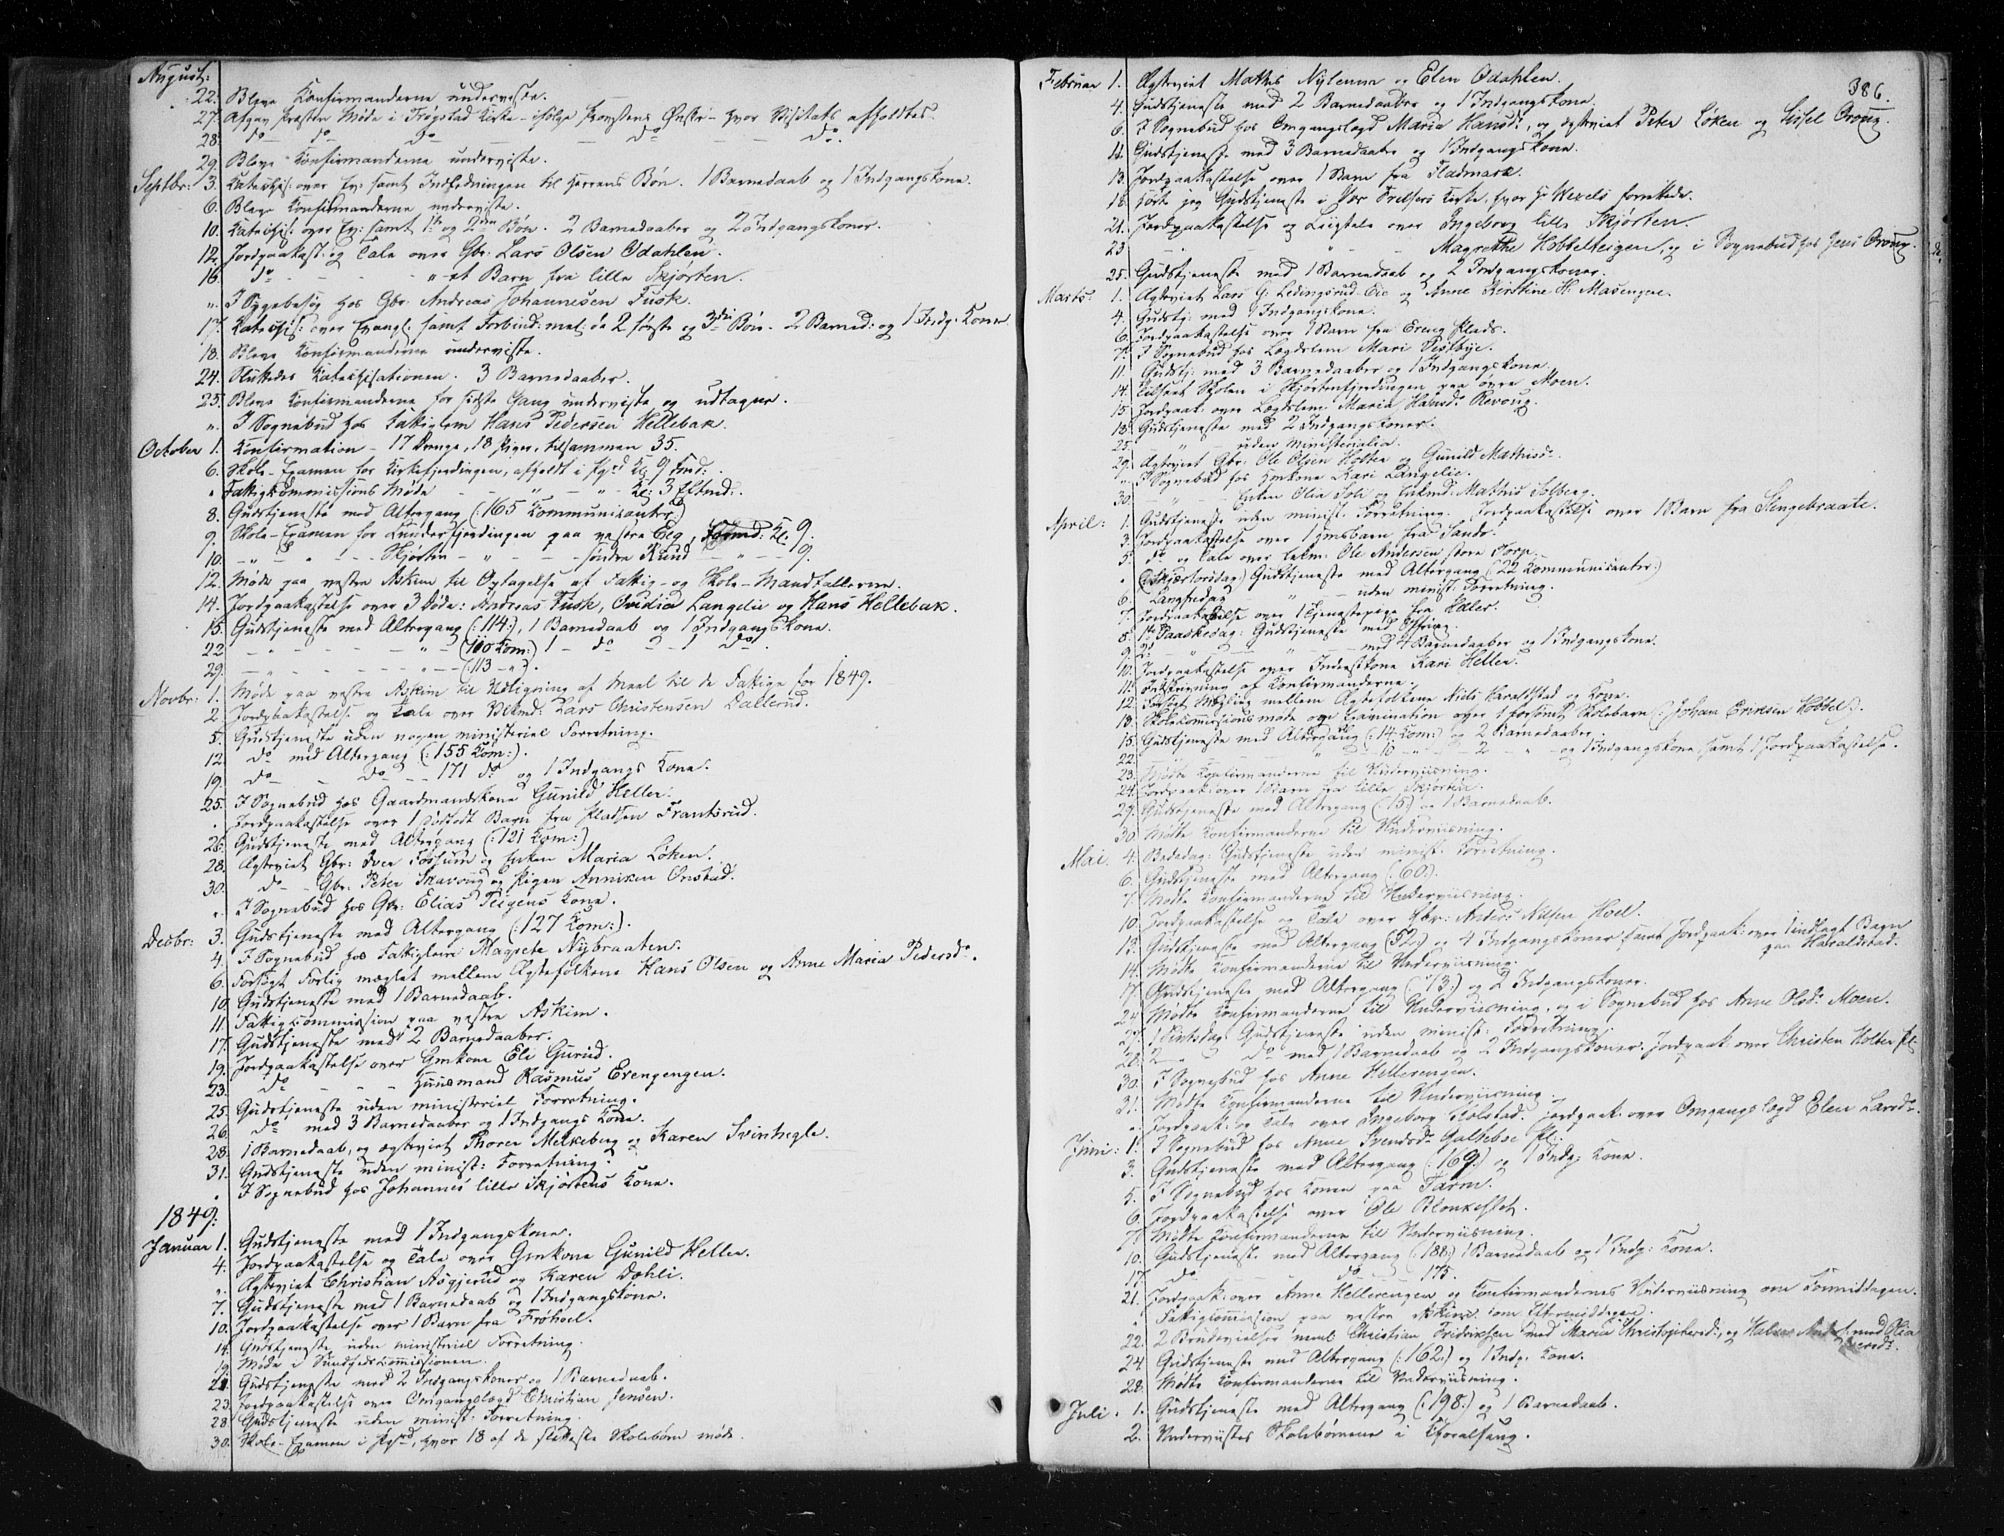 August:
22. Bleve Konfirmanderne underviste.
27. Afgav Præsten Møde i Trøgstad Kirke - ifølge Provstens Ønske - hvor Visitats afholdtes.
28. do - do - do - do - do.
29. Bleve Konfirmanderne underviste.
Septbr: 3. Katechis: over Ev: samt Indledningen til Herrens Bøn. 1 Barnedaab og 1 Indgangskone.
6. Bleve Konfirmanderne underviste.
10. Katechis: over Ev: samt 1ste og 2den Bøn. 2 Barnedaaber og 2 Indgangskoner.
12. Jordpaakast: og Tale over Gbr. Lars Olsen Odahlen.
16. do - - - - " et Barn fra lille Skjørten.
". I Sygebesøg hos Gbr. Andreas Johannesen Tusk.
17. Katechis: over Evangl: samt Forbind: mel: de 2 første og 3die Bøn. 2 Barned: og 1 Indg: Kone.
18. Bleve Konfirmanderne underviste.
24. Sluttedes Katechisationen. 3 Barnedaaber.
25. Bleve Konfirmanderne for sidste Gang underviste og udtagne.
". I Sognebud hos Fattiglem Hans Pedersen Hellebak.
October 1. Konfirmation - 17 Drenge, 18 Piger, tilsammen 35.
6. Skole-Examen for Kirkefjerdingen, afholdt i Pgrd Kl. 9 Fmd:
" Fattigkommissions Møde - - " - " - Kl: 3 Eftmd:.
8. Gudstjeneste med Altergang (165 Kommunikanter)
9. Skole-Examen for Lunderfjerdingen paa vestre Eeg, Kl. 9.
10. - " - " - - Skjørten - " - - søndre Ruud - " - 9.
12. Møde paa vestre Askim til Optagelse af Fattig- og Skole-Mandtallerne.
14. Jordpaakastelse over 3 Døde: Andreas Tusk, Ovidia Langelie og Hans Hellebak.
15. Gudstjeneste med Altergang (:114:), 1 Barnedaab og 1 Indgangskone.
22 - - - - - " - (100 Kom:) 1 - do - 1 do.
29. - - - - - - (:113 - ").
Novbr: 1. Møde paa vestre Askim til Udligning af Maal til de Fattige for 1849.
2. Jordpaakastelse og Tale over Lars Christensen Dallerud.
5. Gudstjeneste uden nogen ministeriel Forretning.
12. do med Altergang (:155 Kom:).
19. do - do - - 171 do og 1 Indgangs Kone.
25. I Sognebud hos Gaardmandskone Gunild Heller.
". Jordpaakastelse over 1 dødfødt Barn fra Pladsen Frantsrud.
26. Gudstjeneste med Altergang (:121 Kom:)
28. Ægteviet Gbr: Iver Fossum og Enken Maria Løken.
30. do - Gbr. Peter Skavoug og Pigen Anniken Onstad.
". I Sognebud hos Gbr: Elias Teigens Kone.
Decbr: 3. Gudstjeneste med Altergang (:127 Kom:).
4. I Sognebud hos Fattiglem Magrete Nybraaten.
6. Forsøgt Forlig mæglet mellem Ægtefolkene Hans Olsen og Anne Maria Pedersdr.
10. Gudstjeneste med 1 Barnedaab.
11. Fattigkommission paa vestre Askim.
17. Gudstjeneste med 2 Barnedaaber.
19. Jordpaakastelse over Gmkone Eli Gurud.
23. do - " - " Huusmand Rasmus Erengengen.
25. Gudstjeneste uden ministeriel Forretning.
26. do med 3 Barnedaaber og 1 Indgangs Kone.
28. 1 Barnedaab, og ægteviet Thorer Melkeberg og Karen Svinhegle.
31. Gudstjeneste uden minist: Forretning.
". I Sognebud hos Johannes lille Skjørtens Kone.
1849:
Januar 1. Gudstjeneste med 1 Indgangskone.
4. Jordpaakastelse og Tale over Gmkone Gunild Heller.
". Ægteviet Christian Asgjerud og Karen Dahli.
7. Gudstjeneste med 1 Barnedaab og 1 Indgangskone.
10. Jordpaakastelse over 1 Barn fra Frøhoel.
14. Gudstjeneste uden ministeriel Forretning.
19. Møde i Sundhedskommissionen.
21. Gudstjeneste med 2 Indgangskoner og 1 Barnedaab.
23. Jordpaakastelse over Omgangslægd Christian Jensen.
28. Gudstjeneste uden minist: Forretning.
30. Skole-Examen i Pgrd, hvor 18 af de flinkeste Skolebørn møde.
386.
Februar 1. Ægteviet Mathis Nylenna og Elen Odahlen.
4. Gudstjeneste med 2 Barnedaaber og 1 Indgangskone.
6. I Sognebud hos Omgangslægd Maria Hansdr, og ægteviet Peter Løken og Sidsel Oroug.
11. Gudstjeneste med 3 Barnedaaber og 1 Indgangskone.
13. Jordpaakastelse over 1 Barn fra Fladmark.
18. hørte jeg Gudstjeneste i Vor Frelsers Kirke, hvor Hr Wexels forrettede.
21. Jordpaakastelse og Liigtale over Ingeborg lille Skjørten.
23 - - - " - Magrethe Hobbelteigen, og i Sognebud hos Jens Oroug.
25. Gudstjeneste med 1 Barnedaab og 2 Indgangskoner.
Marts: 1. Ægteviet Lars G: Ledingsrud Eie og Anne Kirstine H: Masengene.
4. Gudstj: med 1 Indgangskone.
6. Jordpaakastelse over 1 Barn fra Ereng Plads.
7. I Sognebud hos Lægdslem Mari Vestbye.
11. Gudstj: med 3 Barnedaaber og 1 Indgangskone.
14. Tilseet Skolen i Skjørtenfjerdingen paa øvre Moen.
15. Jordpaak: over Lægdslem Maria Hansdr Revoug.
18. Gudstjeneste med 2 Indgangskoner.
25. - " - uden ministerialia.
29. Ægteviet Gbr: Ole Olsen Holter og Gunild Mathisdr.
" I Sognebud hos Hmkone Kari Langelie.
30. - " - Enken Olia Sole og Enkmd: Mathis Solberg.
April: 1. Gudstjeneste uden minist. Forretning. Jordpaakastelse over 1 Barn fra Sengebraate.
3. Jordpaakastelse over 1 Hmsbarn fra Sande.
5. do og Tale over Ole Andersen store Torp.
" (Skjærtorsdag) Gudstjeneste med Altergang (22 Kommunikanter:)
6. Langfredag " - uden minist: Forretning.
7. Jordpaakastelse over 1 Tjenestepige fra Heller.
8. 1ste Paaskedag: Gudstjeneste med Offring.
9. 2. - " - - med 4 Barnedaaber og 1 Indgangskone.
10. Jordpaakastelse over Inderstkone Kari Heller.
11. Indskrivning af Konfirmanderne.
12. Forsøgt Mægling mellem Ægtefolkene Niels Haraldstad og Kone.
13. Skolekommissions Møde og Examination over 1 forsømt Skolebarn (Johan Eriksen Hobbel).
15. Gudstjeneste med Altergang (:14 Kom:) og 2 Barnedaaber.
22. - " - 10 - " - 2 - " - og 1 Indgangskone samt 1 Jordpaakastelse.
23. Mødte Konfirmanderne til Underviisning.
24. Jordpaak: over 1 Barn fra lille Skjørten.
29. Gudstjeneste med Altergang (15) og 1 Barnedaab.
30. Mødte Konfirmanderne til Underviisning.
Mai. 4. Bededag: Gudstjeneste uden minist: Forretning.
6. Gudstjeneste med Altergang (:60:).
7. Mødte Konfirmanderne til Underviisning.
10. Jordpaakastelse og Tale over Gbr: Anders Nilsen Hoel.
13. Gudstjeneste med Altergang (52:) og 4 Indgangskoner samt Jordpaak: over 1 indlagt Barn
paa Haraldstad.
14. Mødte Konfirmanderne til Underviisning.
17. Gudstjeneste med Altergang (:13:) og 2 Indgangskoner.
24. Mødte Konfirmanderne til Underviisning, og i Sognebud hos Anne Olsdr Moen.
27. 1 Pintsdag Gudstjeneste uden minist: Forretning.
28. 2 - do med 1 Barnedaab og 2 Indgangskoner. Jordpaak: over Christen Holter Pl:
30. I Sognebud hos Anne Hellerengen.
31. Mødte Konfirmanderne til Underviisning.
". Jordpaak: og Tale over Ingeborg Jordpaak: over Omgangslægd Elen Larsdr.
Juni: 1. I Sognebud hos Anne Svendsdr Galteboe Pl:
3. Gudstjeneste med Altergang (:169:) og 1 Indg: Kone.
5. I Sognebud hos Konen paa Farm.
6. Jordpaakastelse over Ole Blonkeslet.
7. Mødte Konfirmanderne til Underviisning.
10. Gudstjeneste med Altergang (:188:) 1 Barnedaab og 1 Indg: Kone.
17. do - do 175.
21. Jordpaak: over Anne Hellerengen og Konfirmandernes Underviisning om Formiddagen.
" Fattigkommission paa vestre Askim om Eftermiddagen.
22. 2 Brudevielser neml Christian Fridriksen med Maria Christophersd:, og Halvor med Olia
24. Gudstjeneste med Altergang (:162:) og 1 Indg. Kone.
28. Mødte Konfirmanderne til Underviisning.
Juli. 1. Gudstjeneste med Altergang (:198:) og 1 Barnedaab.
2. Underviistes Skolebørnene i Choralsang.